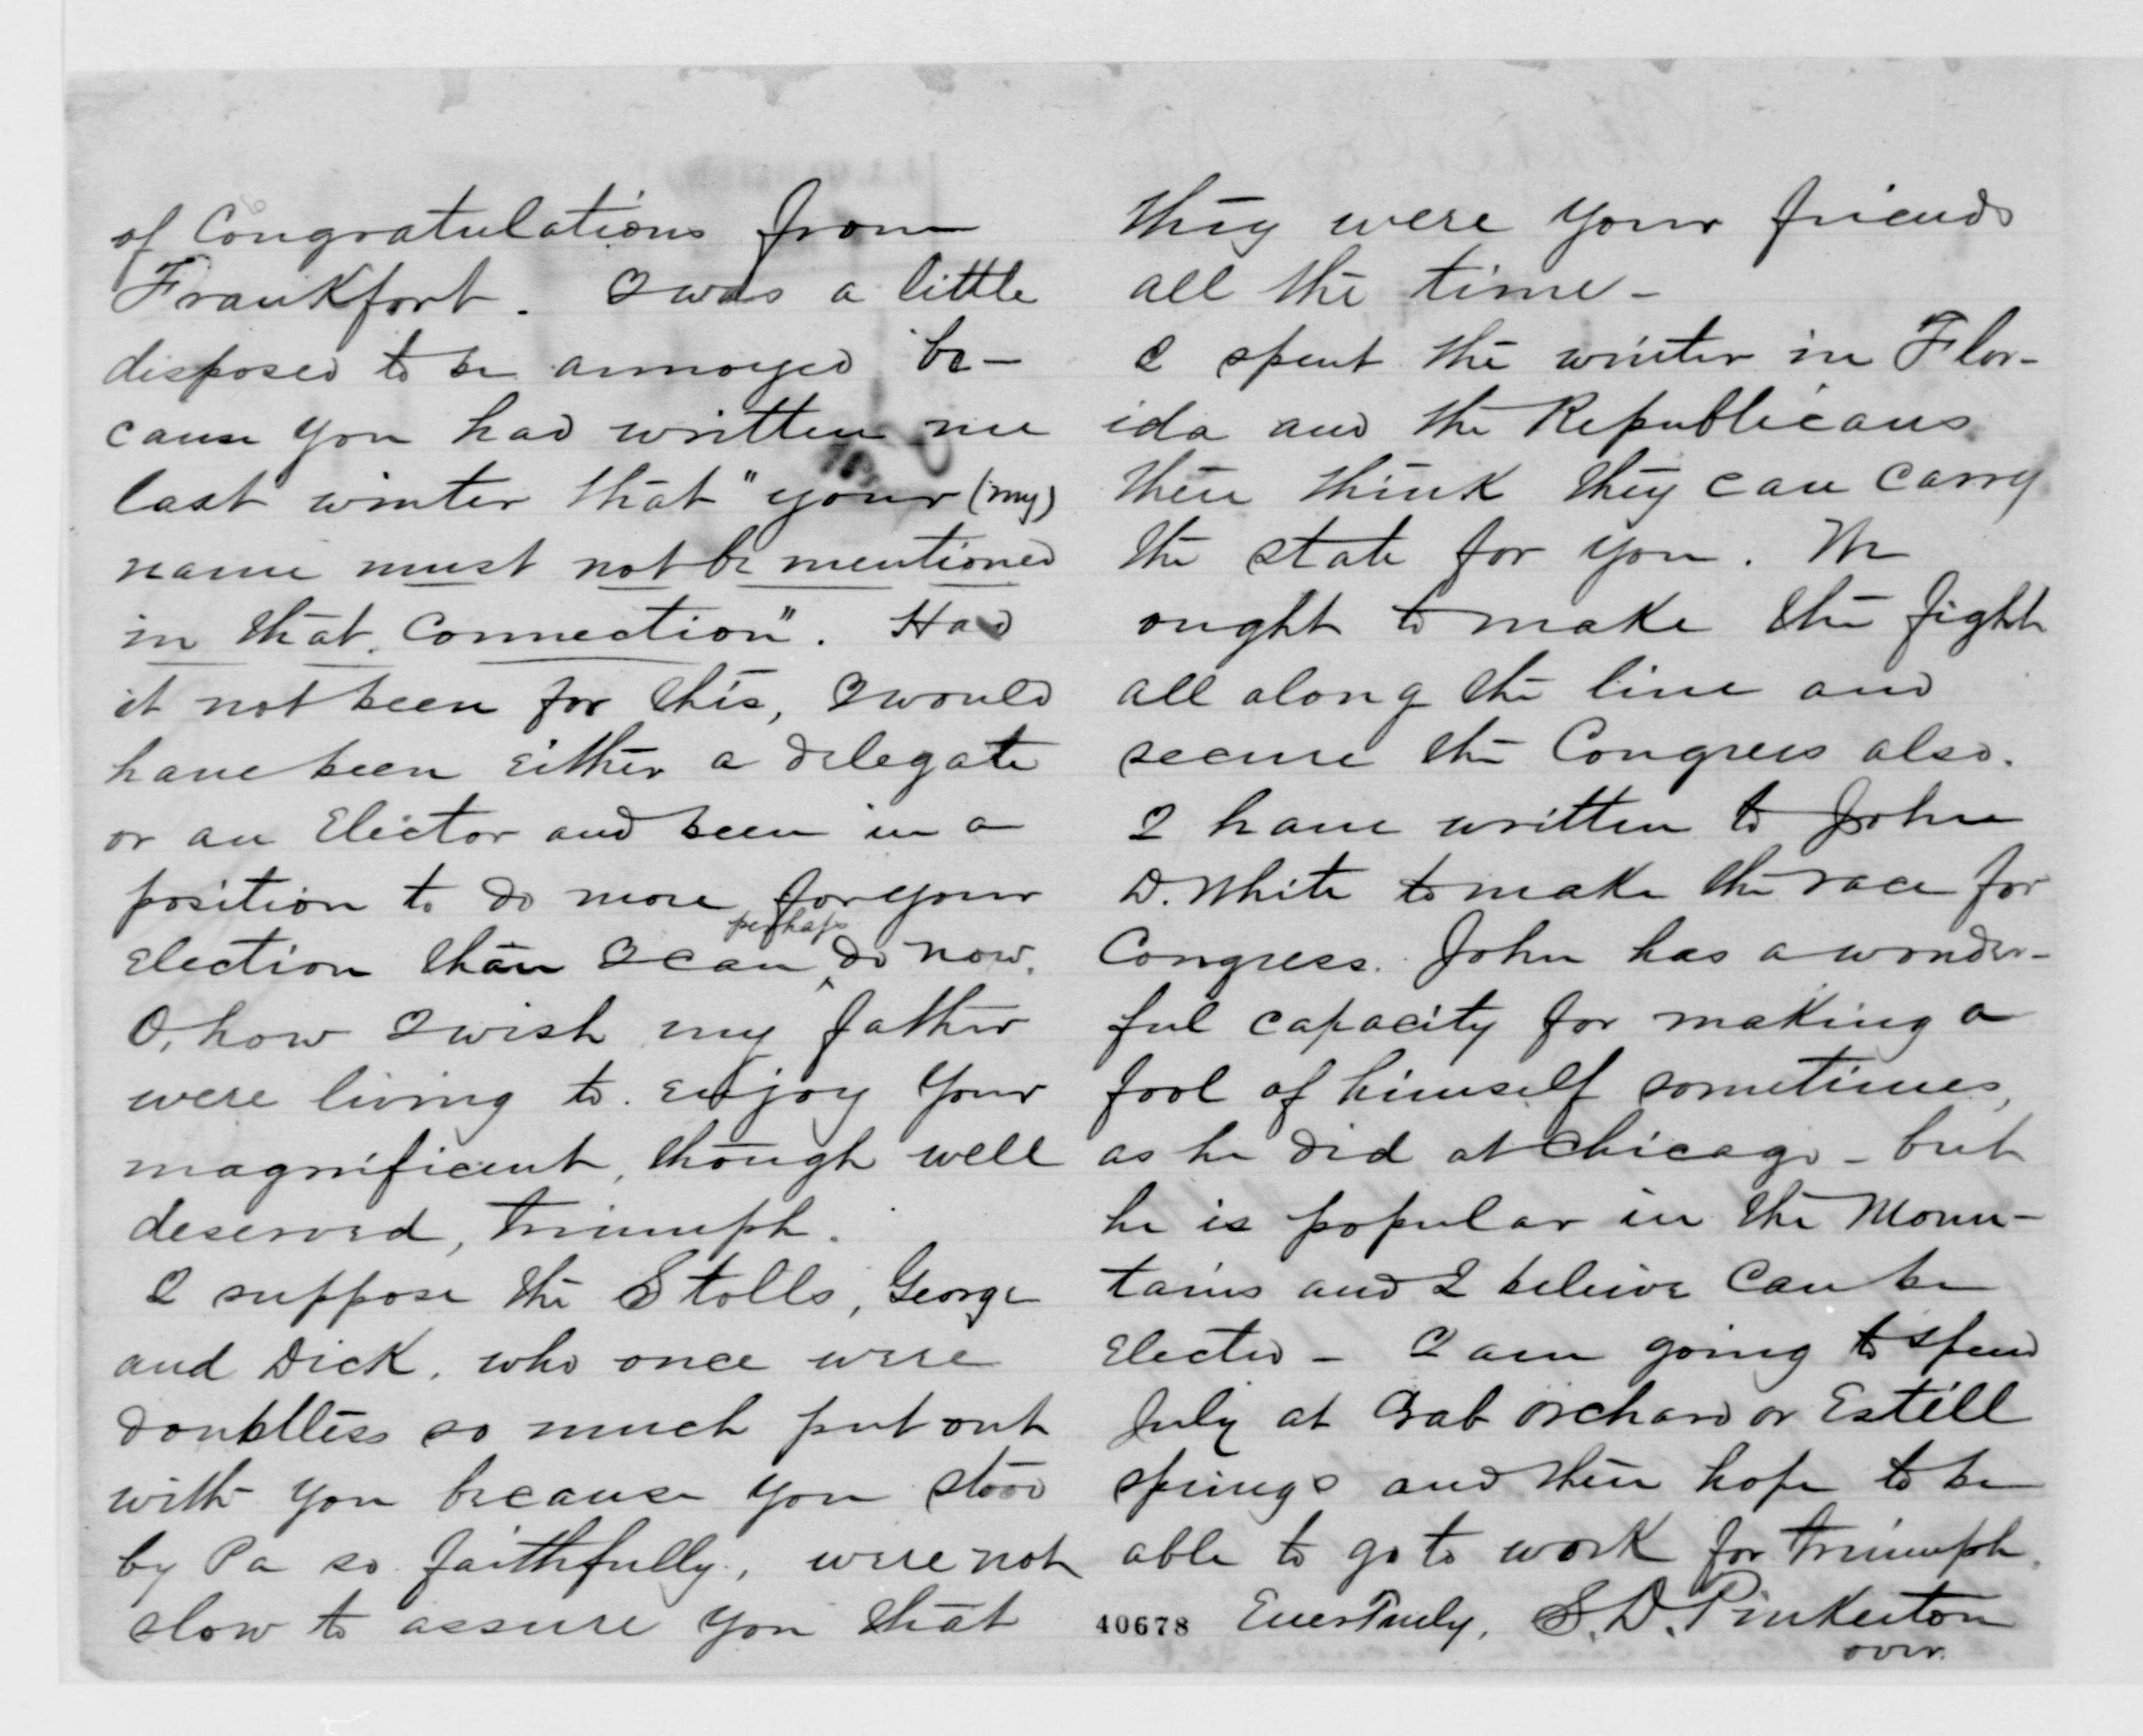 of Congratulations from
Frankfort. I was a little
disposed to be annoyed be-
cause you had written me
last winter that "your (my)
name must not be mentioned
in that connection". Had
it not been for this, I would
have been either a delegate
or an Elector and been in a
position to do more for your
election than I can perhaps do now.
O, how I wish my father
were living to enjoy your
magnificent, though well
deserved, triumph.
I suppose the Stolls, George
and Dick, who once were
doubtless so much put out
with you because you stood
by Pa so faithfully, were not
slow to assure you that
they were your friends
all the time -
I spent the winter in Flor-
ida and the Republicans
there think they can carry
the state for you. We
ought to make the fight
all along the line and
secure the Congress also.
I have written to John
D. White to make the race for
Congress. John has a wonder-
ful capacity for making a
fool of himself sometimes,
as he did at Chicago - but
he is popular in the Moun-
tains and I believe can be
elected - I am going to spend
July at Crab Orchard or Estill
springs and then hope to be
able to go to work for triumph.
40678 Ever Truly, S. D. Pinkerton
over.